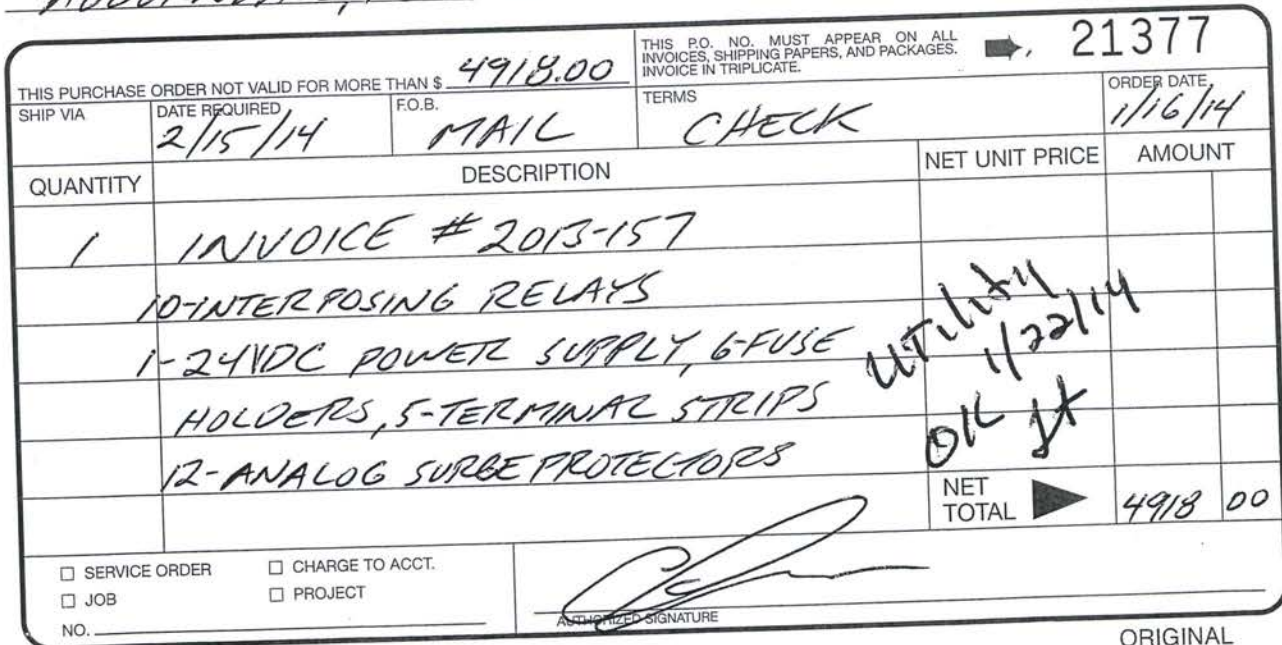 THIS PURCHASE ORDER NOT VALID FOR MORE THAN $ 4918.00
THIS P.O. NO. MUST APPEAR ON ALL
INVOICES, SHIPPING PAPERS, AND PACKAGES.
INVOICE IN TRIPLICATE.
21377
SHIP VIA
DATE REQUIRED
2/15/14
F.O.B.
MAIL
TERMS
CHECK
ORDER DATE
1/16/14
QUANTITY DESCRIPTION NET UNIT PRICE AMOUNT
1 INVOICE # 2013-157
10-INTERPOSING RELAYS
1-24VDC POWER SUPPLY, 6-FUSE
HOLDERS, 5-TERMINAL STRIPS
12-ANALOG SURGE PROTECTORS
Utility
1/22/14
OK
NET
TOTAL 4918 00
SERVICE ORDER CHARGE TO ACCT.
JOB PROJECT
NO.
AUTHORIZED SIGNATURE
ORIGINAL